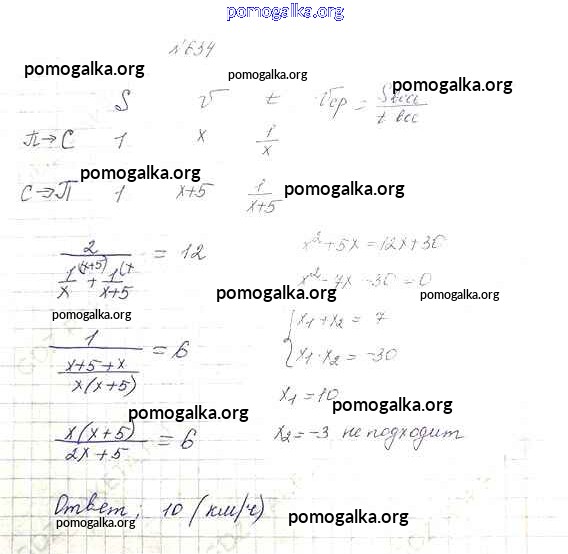 pomogalka.org
№ 634
pomogalka.org
pomogalka.org
pomogalka.org
S v t vср = Sвсе/t вс
П→С 1 x 1/x
pomogalka.org
С→П 1 x+5 1/(x+5)
pomogalka.org
2/(1/x (x+5) + 1/(x+5) (x) = 12
x²+5x=12x+30
pomogalka.org
x²-7x-30=0
pomogalka.org
pomogalka.org
1/((x+5+x)/(x(x+5))) = 6
{x₁+x₂ = 7
x₁·x₂ = -30
x₁=10
pomogalka.org
pomogalka.org
x(x+5)/(2x+5) = 6
x₂=-3 не подходит
Ответ: 10 (км/ч)
pomogalka.org
pomogalka.org